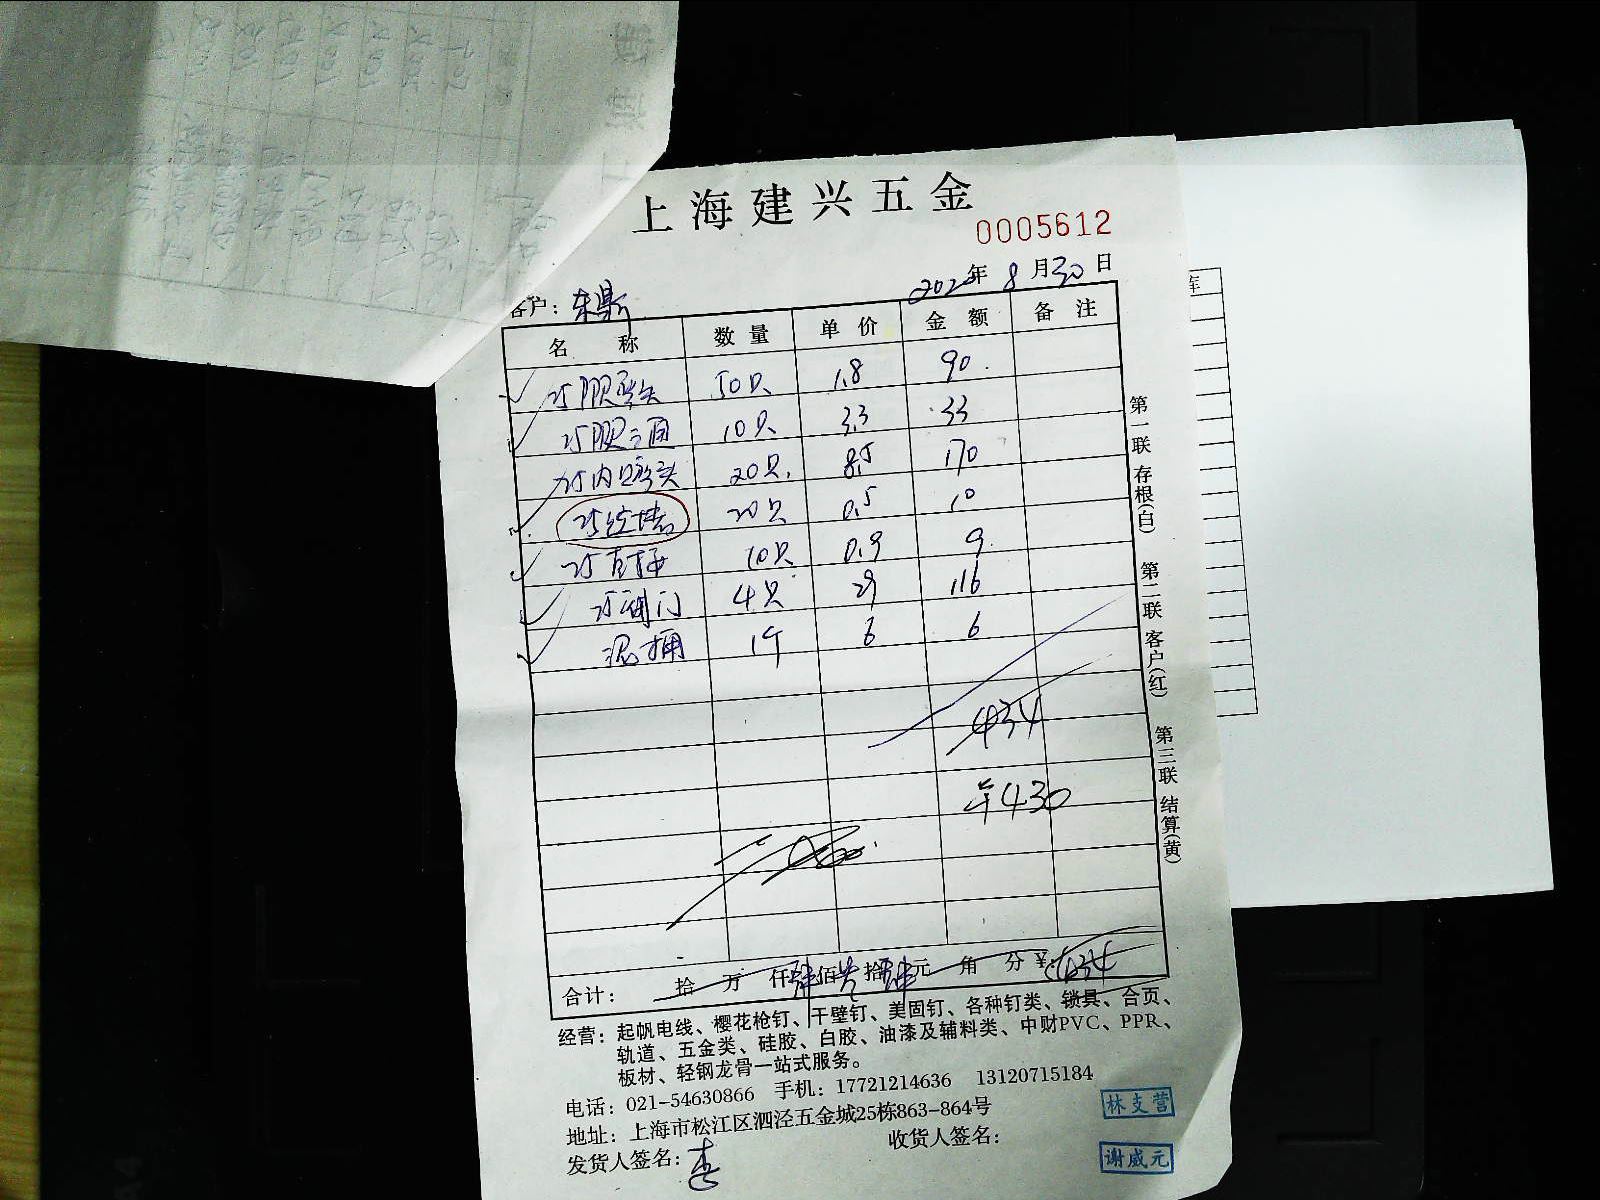 上海建兴五金
0005612
客户：东鼎 2022年 8月30日
名称 数量 单价 金额 备注
25PPR弯头 50只 1.8 90
25PPR三通 10只 3.3 33
25内弯头 20只 8.5 170
25 20只 0.5 10
25直接 10只 0.9 9
25阀门 4只 29 116
泥桶 1个 6 6
434
¥430
合计： 拾 万 仟肆佰叁拾肆元 角 分 ¥：434
经营：起帆电线、樱花枪钉、干壁钉、美固钉、各种钉类、锁具、合页、
轨道、五金类、硅胶、白胶、油漆及辅料类、中财PVC、PPR、
板材、轻钢龙骨一站式服务。
电话：021-54630866 手机：17721214636 13120715184
地址：上海市松江区泗泾五金城25栋863-864号
发货人签名： 收货人签名：
林支营
谢威元
第一联 存根(白) 第二联 客户(红) 第三联 结算(黄)
库